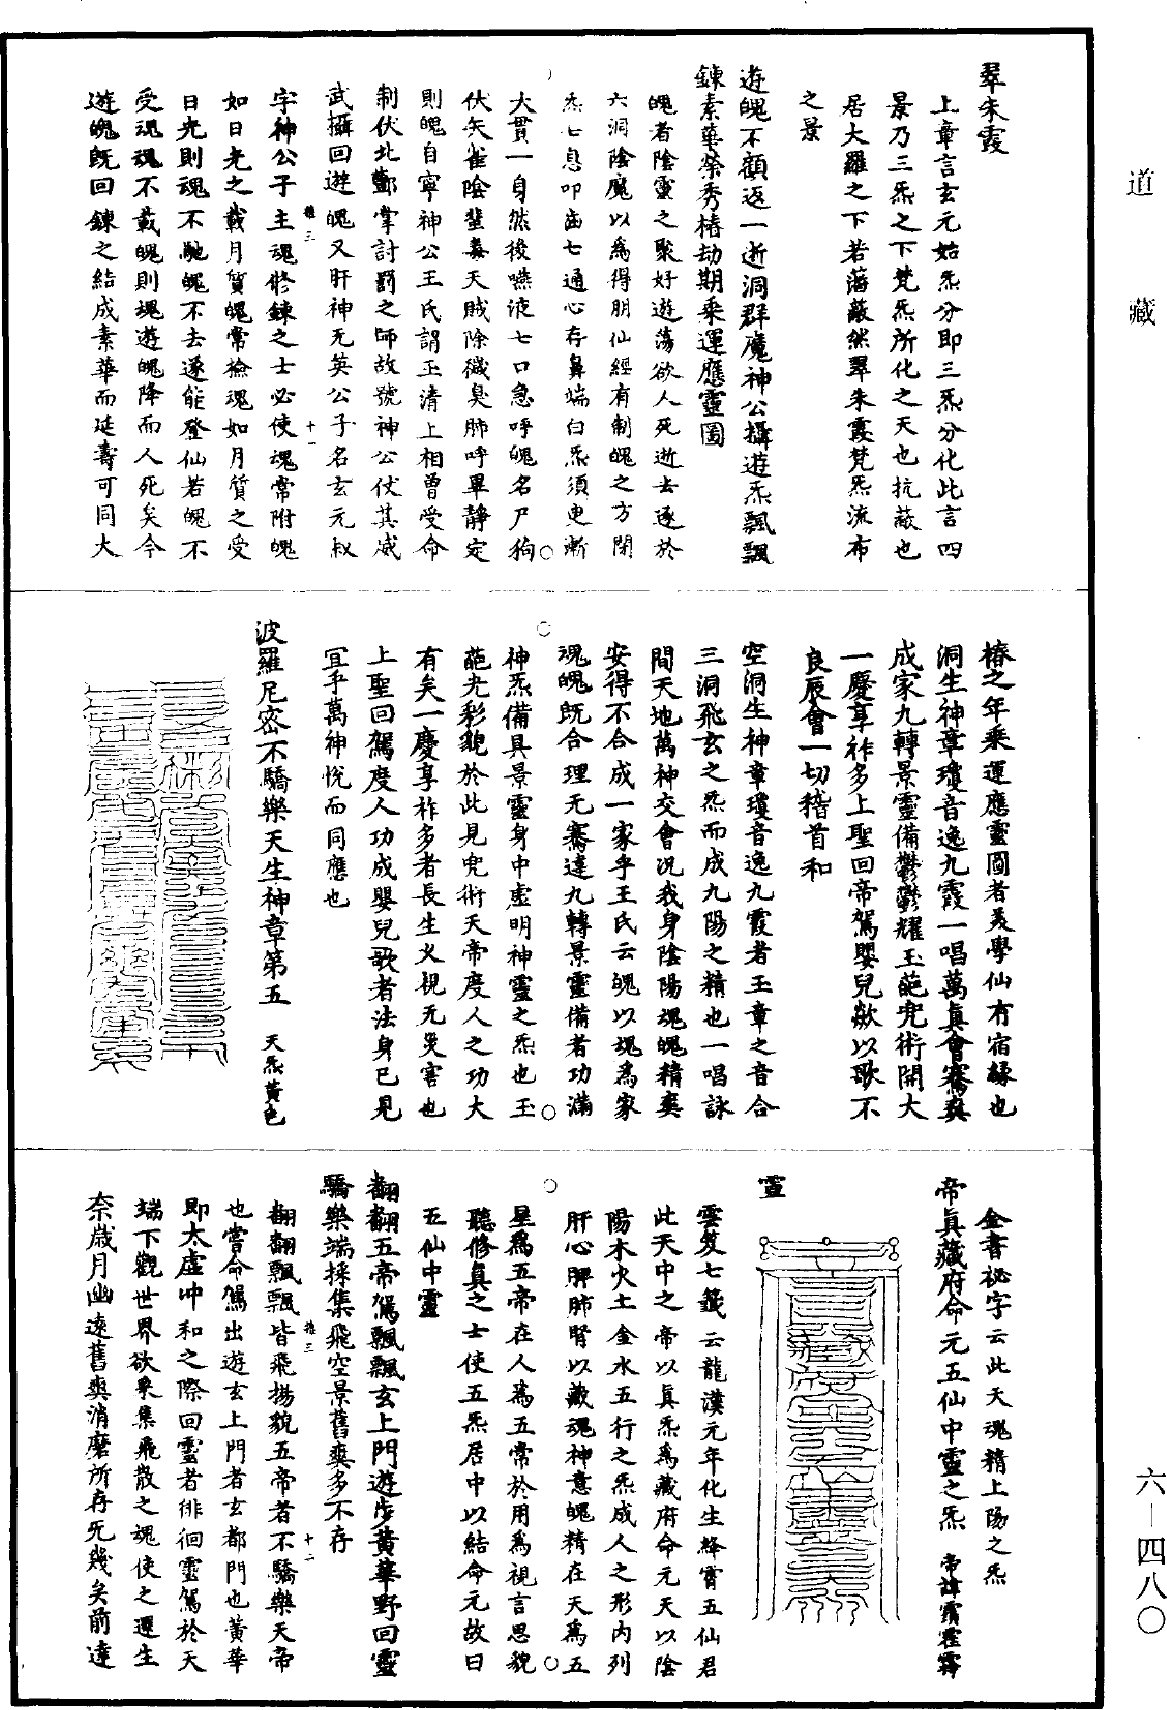 翠朱霞
上章言玄元始炁分即三炁分化此言四
景乃三炁之下梵炁所化之天也抗蔽也
居大羅之下若蕩蔽然翠朱霞梵炁流布
之景
遊魄不顧返一逝洞群魔神公攝遊炁飄飄
鍊素華榮秀椿劫期乘運應靈圖
魄者陰靈之聚好遊蕩欲人死逝去逐於
六洞陰魔以為得朋仙經有制魄之方閉
炁七息叩齒七通心存鼻端白炁須臾漸
大貫一身然後嚥液七口急呼魄名尸狗
伏矢雀陰蜚毒天賊除穢臭肺呼畢靜定
則魄自寧神公王氏謂玉清上相曾受命
制伏北酆掌討罰之師故號神公伏其威
武攝回遊魄又肝神无英公子名玄元叔
宇神公子主魂修鍊之士必使魂常附魄
如日光之載月質魄常檢魂如月質之受
日光則魂不馳魄不去遂能登仙若魄不
受魂魂不載魄則魂遊魄降而人死矣今
遊魄既回鍊之結成素華而延壽可同大
椿之年乘運應靈圖者美學仙有宿緣也
洞生神章瓊音逸九霞一唱萬真會騫爽
成家九轉景靈備鬱鬱耀玉葩兜術開大
一慶享祚多上聖回帝駕嬰兒歘以歌不
良辰會一切稽首和
空洞生神章瓊音逸九霞者玉章之音合
三洞飛玄之炁而成九陽之精也一唱詠
間天地萬神交會況我身陰陽魂魄精爽
安得不合成一家乎王氏云魄以魂為家
魂魄既合理无騫違九轉景靈備者功滿
神炁備具景靈身中虛明神靈之炁也玉
葩光彩貌於此見兜術天帝度人之功大
有矣一慶享祚多者長生久視无災害也
上聖回駕度人功成嬰兒歌者法身已見
宜乎萬神悅而同應也
波羅尼密不驕樂天生神章第五　天炁黃色
金書祕字云此天魂精上陽之炁
帝真藏府命元五仙中靈之炁　帝諱
靈
雲笈七籤云龍漢元年化生絳霄五仙君
此天中之帝以真炁為藏府命元天以陰
陽木火土金水五行之炁成人之形內列
肝心脾肺腎以藏魂神意魄精在天為五
星為五帝在人為五常於用為視言思貌
聽修真之士使五炁居中以結命元故曰
五仙中靈
翻翻五帝駕飄飄玄上門遊步黃華野回靈
驕樂端採集飛空景舊爽多不存
翻翻飄飄皆飛揚貌五帝者不驕樂天帝
也嘗命駕出遊玄上門者玄都門也黃華
即太虛中和之際回靈者徘徊靈駕於天
端下觀世界欲采集飛散之魂使之還生
奈歲月幽遠舊爽消磨所存无幾矣前達
道藏
六—四八〇